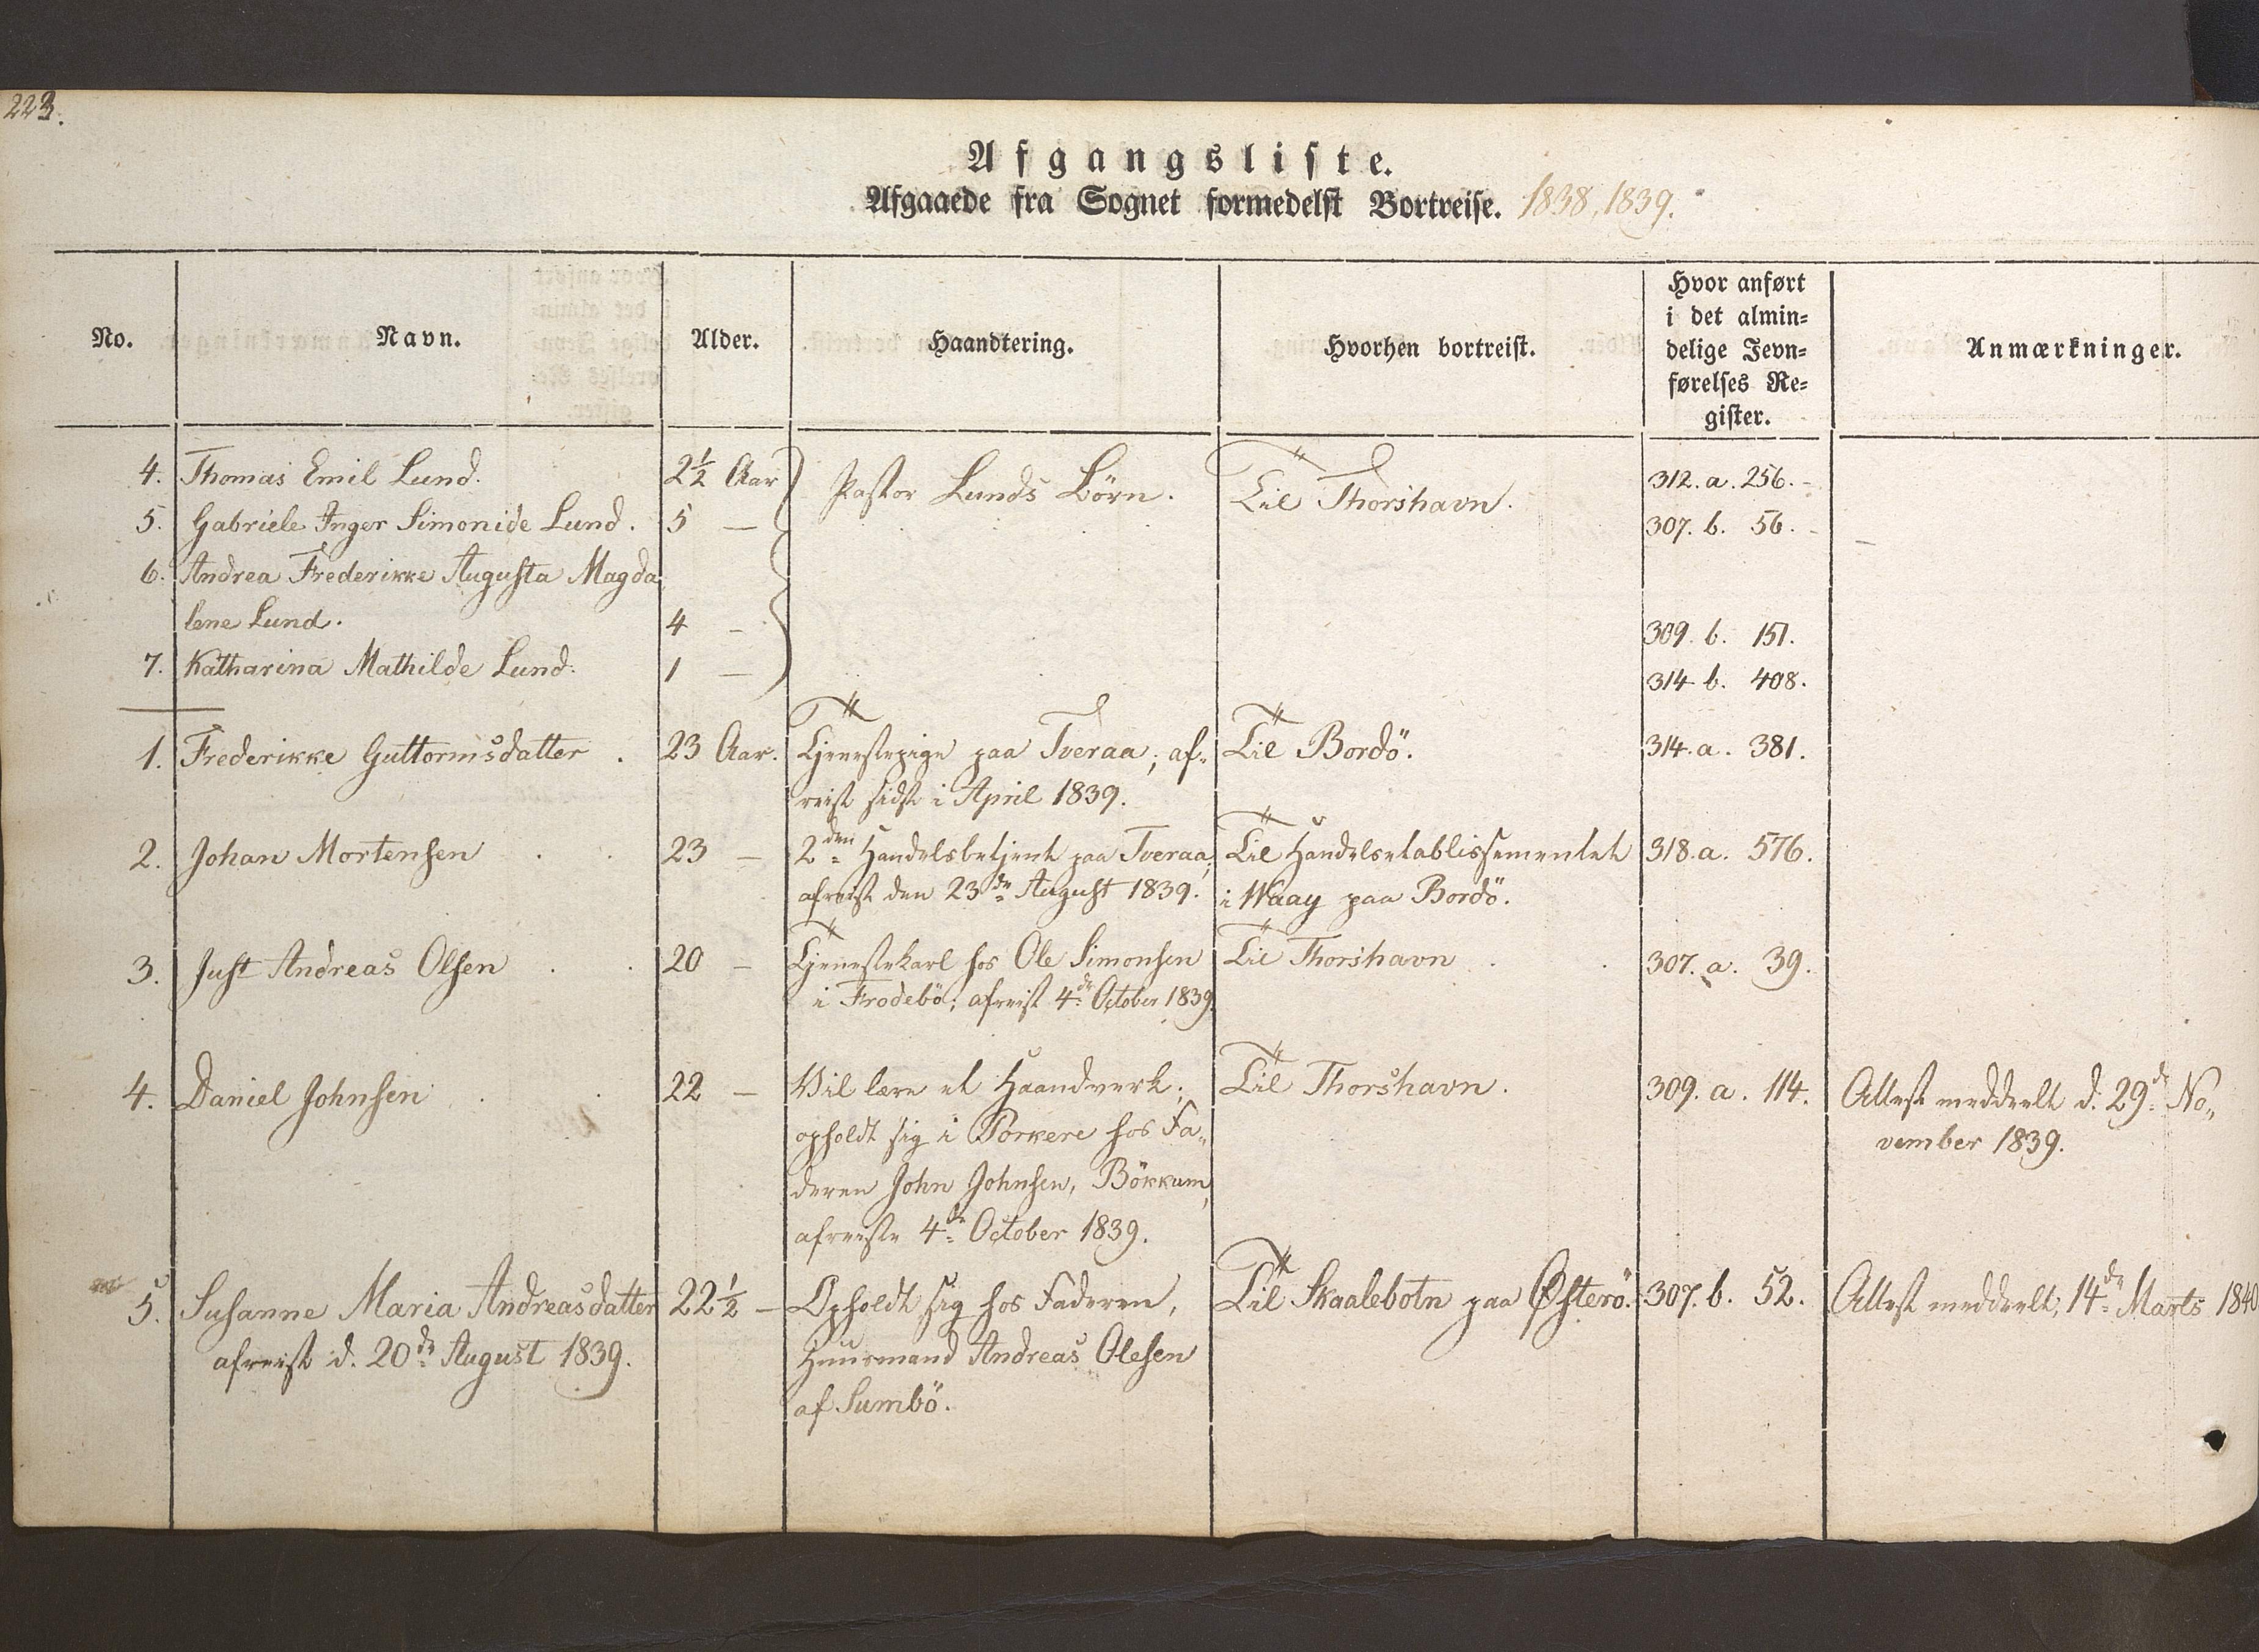 223.
Afgangsliste.
Afgaaede fra Sognet formedelst Bortreise. 1838, 1839.
No. Navn. Alder. Haandtering. Hvorhen bortreist. Hvor anført i det almin= delige Jevn= førelses Re= gister. Anmærkninger.
4. Thomas Emil Lund. 2½ Aar Pastor Lunds Börn. Til Thorshavn. 312. a. 256. -
5. Gabriele Inger Simonide Lund. 5 — 307. b. 56. -
6. Andrea Frederikke Augusta Magda
lene Lund. 4 - 309. b. 151.
7. Katharina Mathilde Lund. 1 — 314 b. 408.
1. Frederikke Guttormsdatter . 23 Aar. Tjenestepige paa Tveraa; af= Til Bordö. 314. a. 381.
reist sidst i April 1839.
2. Johan Mortensen . . 23 — 2den Handelsbetjent paa Tveraa; Til Handelsetablissementet 318. a. 576.
afreist den 23de August 1839. i Waag paa Bordö.
3. Just Andreas Olsen . . 20 — Tjenestekarl hos Ole Simonsen Til Thorshavn . . 307. a. 39.
i Frodebö; afreist 4de October 1839.
4. Daniel Johnsen . . 22 — Vil lære et Haandverk; Til Thorshavn. 309. a. 114. Attest meddeelt d. 29de No=
opholdt sig i Porkere hos Fa= vember 1839.
deren John Johnsen, Bökkum,
afreiste 4de October 1839.
5. Susanne Maria Andreasdatter 22½ — Opholdt sig hos Faderen, Til Skaalebotn paa Østerö. 307. b. 52. Attest meddeelt, 14de Marts 1840
afreist d. 20de August 1839. Huusmand Andreas Olesen
af Sumbö.